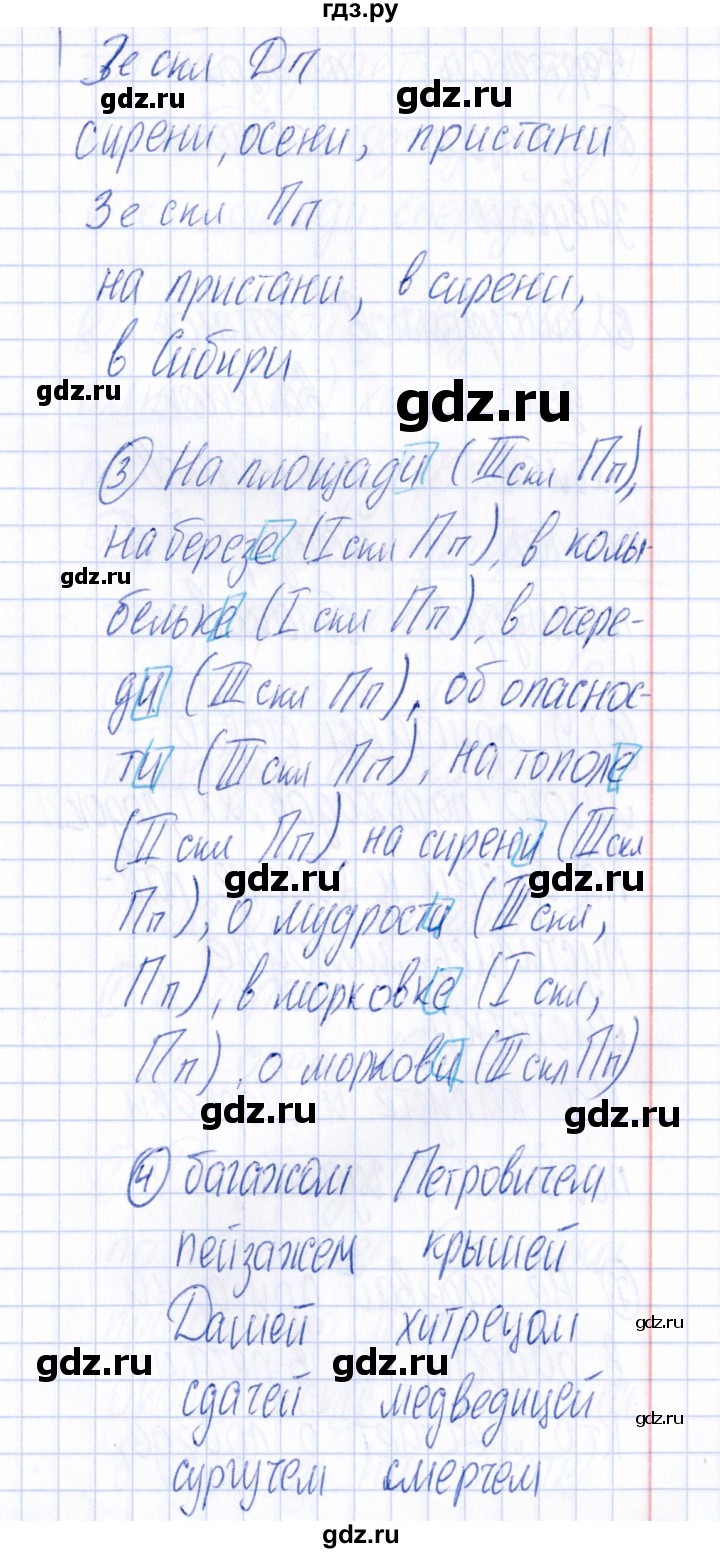 гдз.ру
3е скл Дп
gdz.ru
gdz.ru
сирени, осени, пристани
gdz.ru
3е скл Пп
на пристани, в сирени,
в Сибири
gdz.ru
gdz.ru
③ На площади (III скл Пп),
на березе (I скл Пп), в колы-
gdz.ru
бельке (I скл Пп), в очере-
ди (III скл Пп), об опаснос-
ти (III скл Пп), на тополе
(II скл Пп), на сирени (III скл
gdz.ru
gdz.ru
Пп), о мудрости (III скл,
Пп), в морковке (I скл,
Пп), о моркови (III скл Пп)
gdz.ru
gdz.ru
④ багажом Петровичем
пейзажем крышей
Дашей хитрецом
gdz.ru
gdz.ru
gdz.ru
сдачей медведицей
gdz.ru
сургучем смерчем
gdz.ru